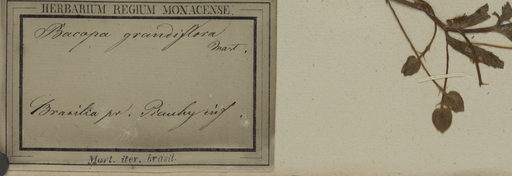 HERBARIUM REGIUM MONACENSE.
Bacopa grandiflora
Mart.
Brasilia pr. Piauhy inf.
Mart. iter. brasil.